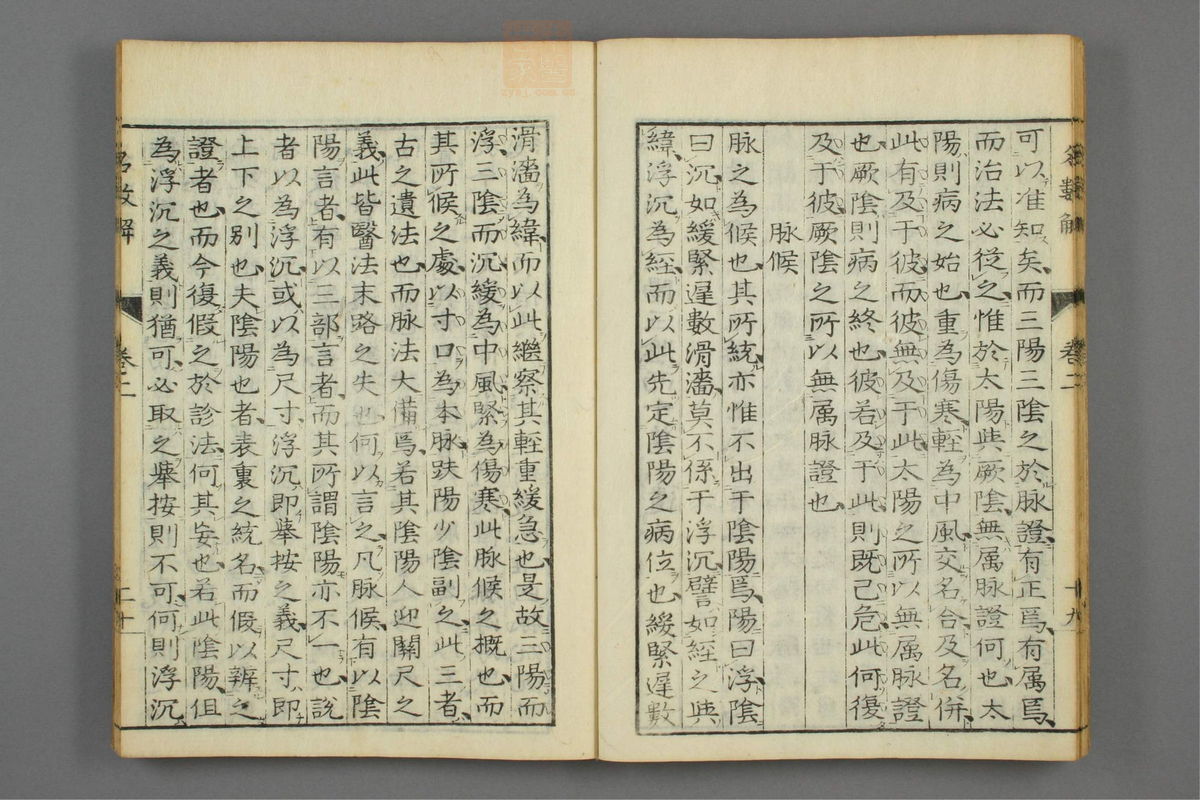 可以准知矣而三陽三陰之於脉證有正焉有属焉
而治法必從之惟於太陽與厥陰無属脉證何也太
陽則病之始也重為傷寒輕為中風交名合及名併
此有及于彼而彼無及于此太陽之所以無属脉證
也厥陰則病之終也彼若及于此則既已危此何復
及于彼厥陰之所以無属脉證也
脉候
脉之為候也其所統亦惟不出于陰陽焉陽曰浮陰
曰沉如緩緊遲數滑濇莫不係于浮沉譬如經之與
緯浮沉為經而以此先定陰陽之病位也緩緊遲數
卷二
十九
滑濇為緯而以此繼察其輕重緩急也是故三陽而
浮三陰而沉緩為中風緊為傷寒此脉候之概也而
其所候之處以寸口為本脉趺陽少陰副之此三者
古之遺法也而脉法大備焉若其陰陽人迎關尺之
義此皆醫法末路之失也何以言之凡脉候有以陰
陽言者有以三部言者而其所謂陰陽亦不一也說
者以為浮沉或以為尺寸浮沉即舉按之義尺寸即
上下之别也夫陰陽也者表裏之統名而假以辨之
證者也而今復假之於診法何其妄也若此陰陽但
為浮沉之義則猶可必取之舉按則不可何則浮沉
名數解
卷二
二十